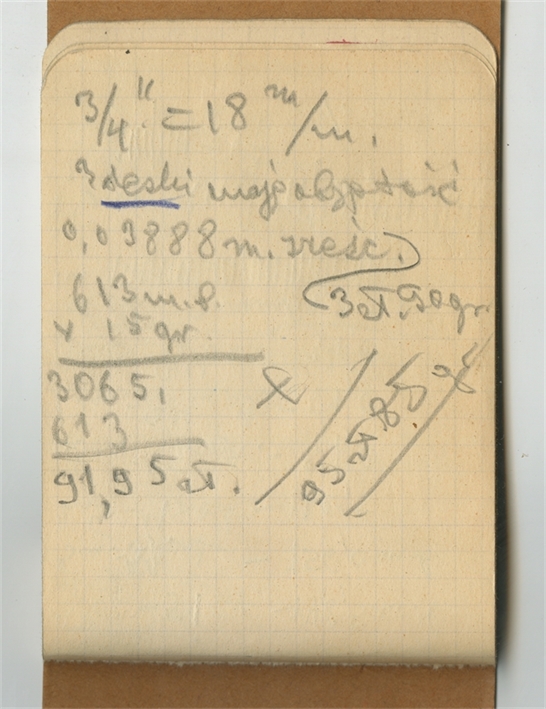 3/4" = 18 m/m.
3 deski mają objętość
0,03888 m. sześć.
3 zł. 90 gr.
613 m.b.
x 15 gr.
3065
613
91,95 zł.
95 zł 85 gr